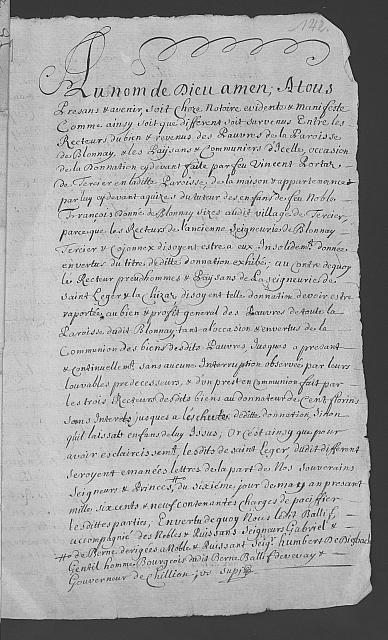 142.
Au nom de Dieu amen, A tous
Presans & avenir, soit Choze Notoire evidente & Manifeste
Comme ainsy soit que different soit survenus Entre les
Recteurs du bien & revenus des Pauvres de la Paroisse
de Blonnay, & les Paysans & Communiers d'Icelle, occasion
de la Donnation cydevant faite par feu Vincent Portaz,
de Tercier en ladite Paroisse, de la maison & appartenances
par luy cydevant aquizes du tuteur des enfans de feu Noble
François Donné de Blonnay sizes audit village de Tercier,
parce que les Recteurs de l'ancienne seigneurie de Blonnay
Tercier & Cojonnex disoyent estre a eux Insolidemt. donnée
en vertus du titre de ditte donnation exhibé; au contre de quoy
le Recteur preudhommes & Paysans de La seigneurie de
saint Leger & la Chizaz, disoyent telle donnation devoir estre
raportée au bien & profit general des Pauvres de toute la
Paroisse dudit Blonnay tant al'occasion & en vertus de la
Communion des biens desdits Pauvres, Jusques a presant
& continuellemt. sans aucune Interruption observée par leurs
louvables predecesseurs, & d'un prest en Communion fait par
les trois Recteurs desdits biens au donnateur de Cent florins
sans Interêts jusques a l'eschute de ditte donnation, sinon
qu'il laissat enfans de luy Issus, Or c'est ainsy que pour
avoir esclaircissemt. lesdits de saint Leger, dudit different
seroyent emanées lettres de la part de Nos Souverains
Seigneurs & Princes, du sixieme jour de may an presant
mille six cents & neuf contenantes charges de paciffier
lesdittes parties, En vertu de quoy Nous ledit Ballif,
accompagné des Nobles & Puissans seigneurs Gabriel &
# de Berne derigées a Noble & Puissant Seigr. humbert De Diesbach
Gentil homme Bourgeois dudit Berne Ballif de vevay &
Gouverneur de Chillion